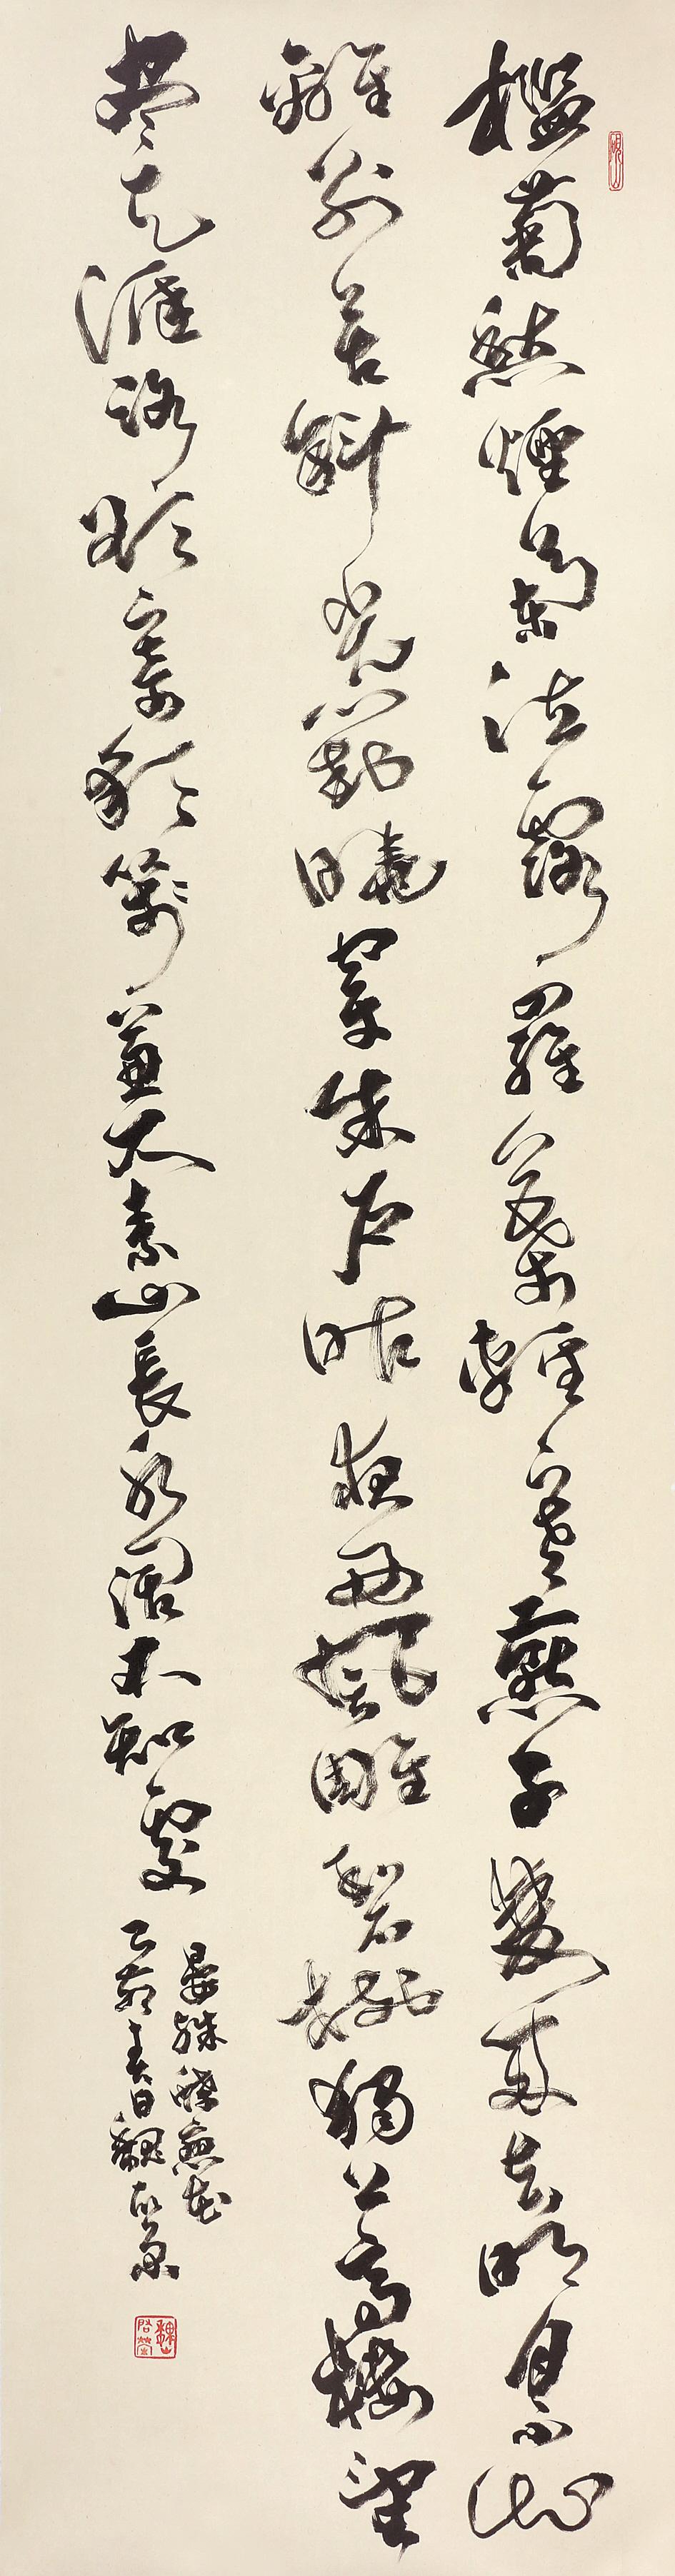 檻菊愁煙蘭泣露羅幕輕寒燕子雙來去明月不諳
離別苦斜光到曉穿朱戶昨夜西風雕碧樹獨上高樓望
盡天涯路欲寄彩箋兼尺素山長水闊不知處
晏殊蝶戀花
春日魏